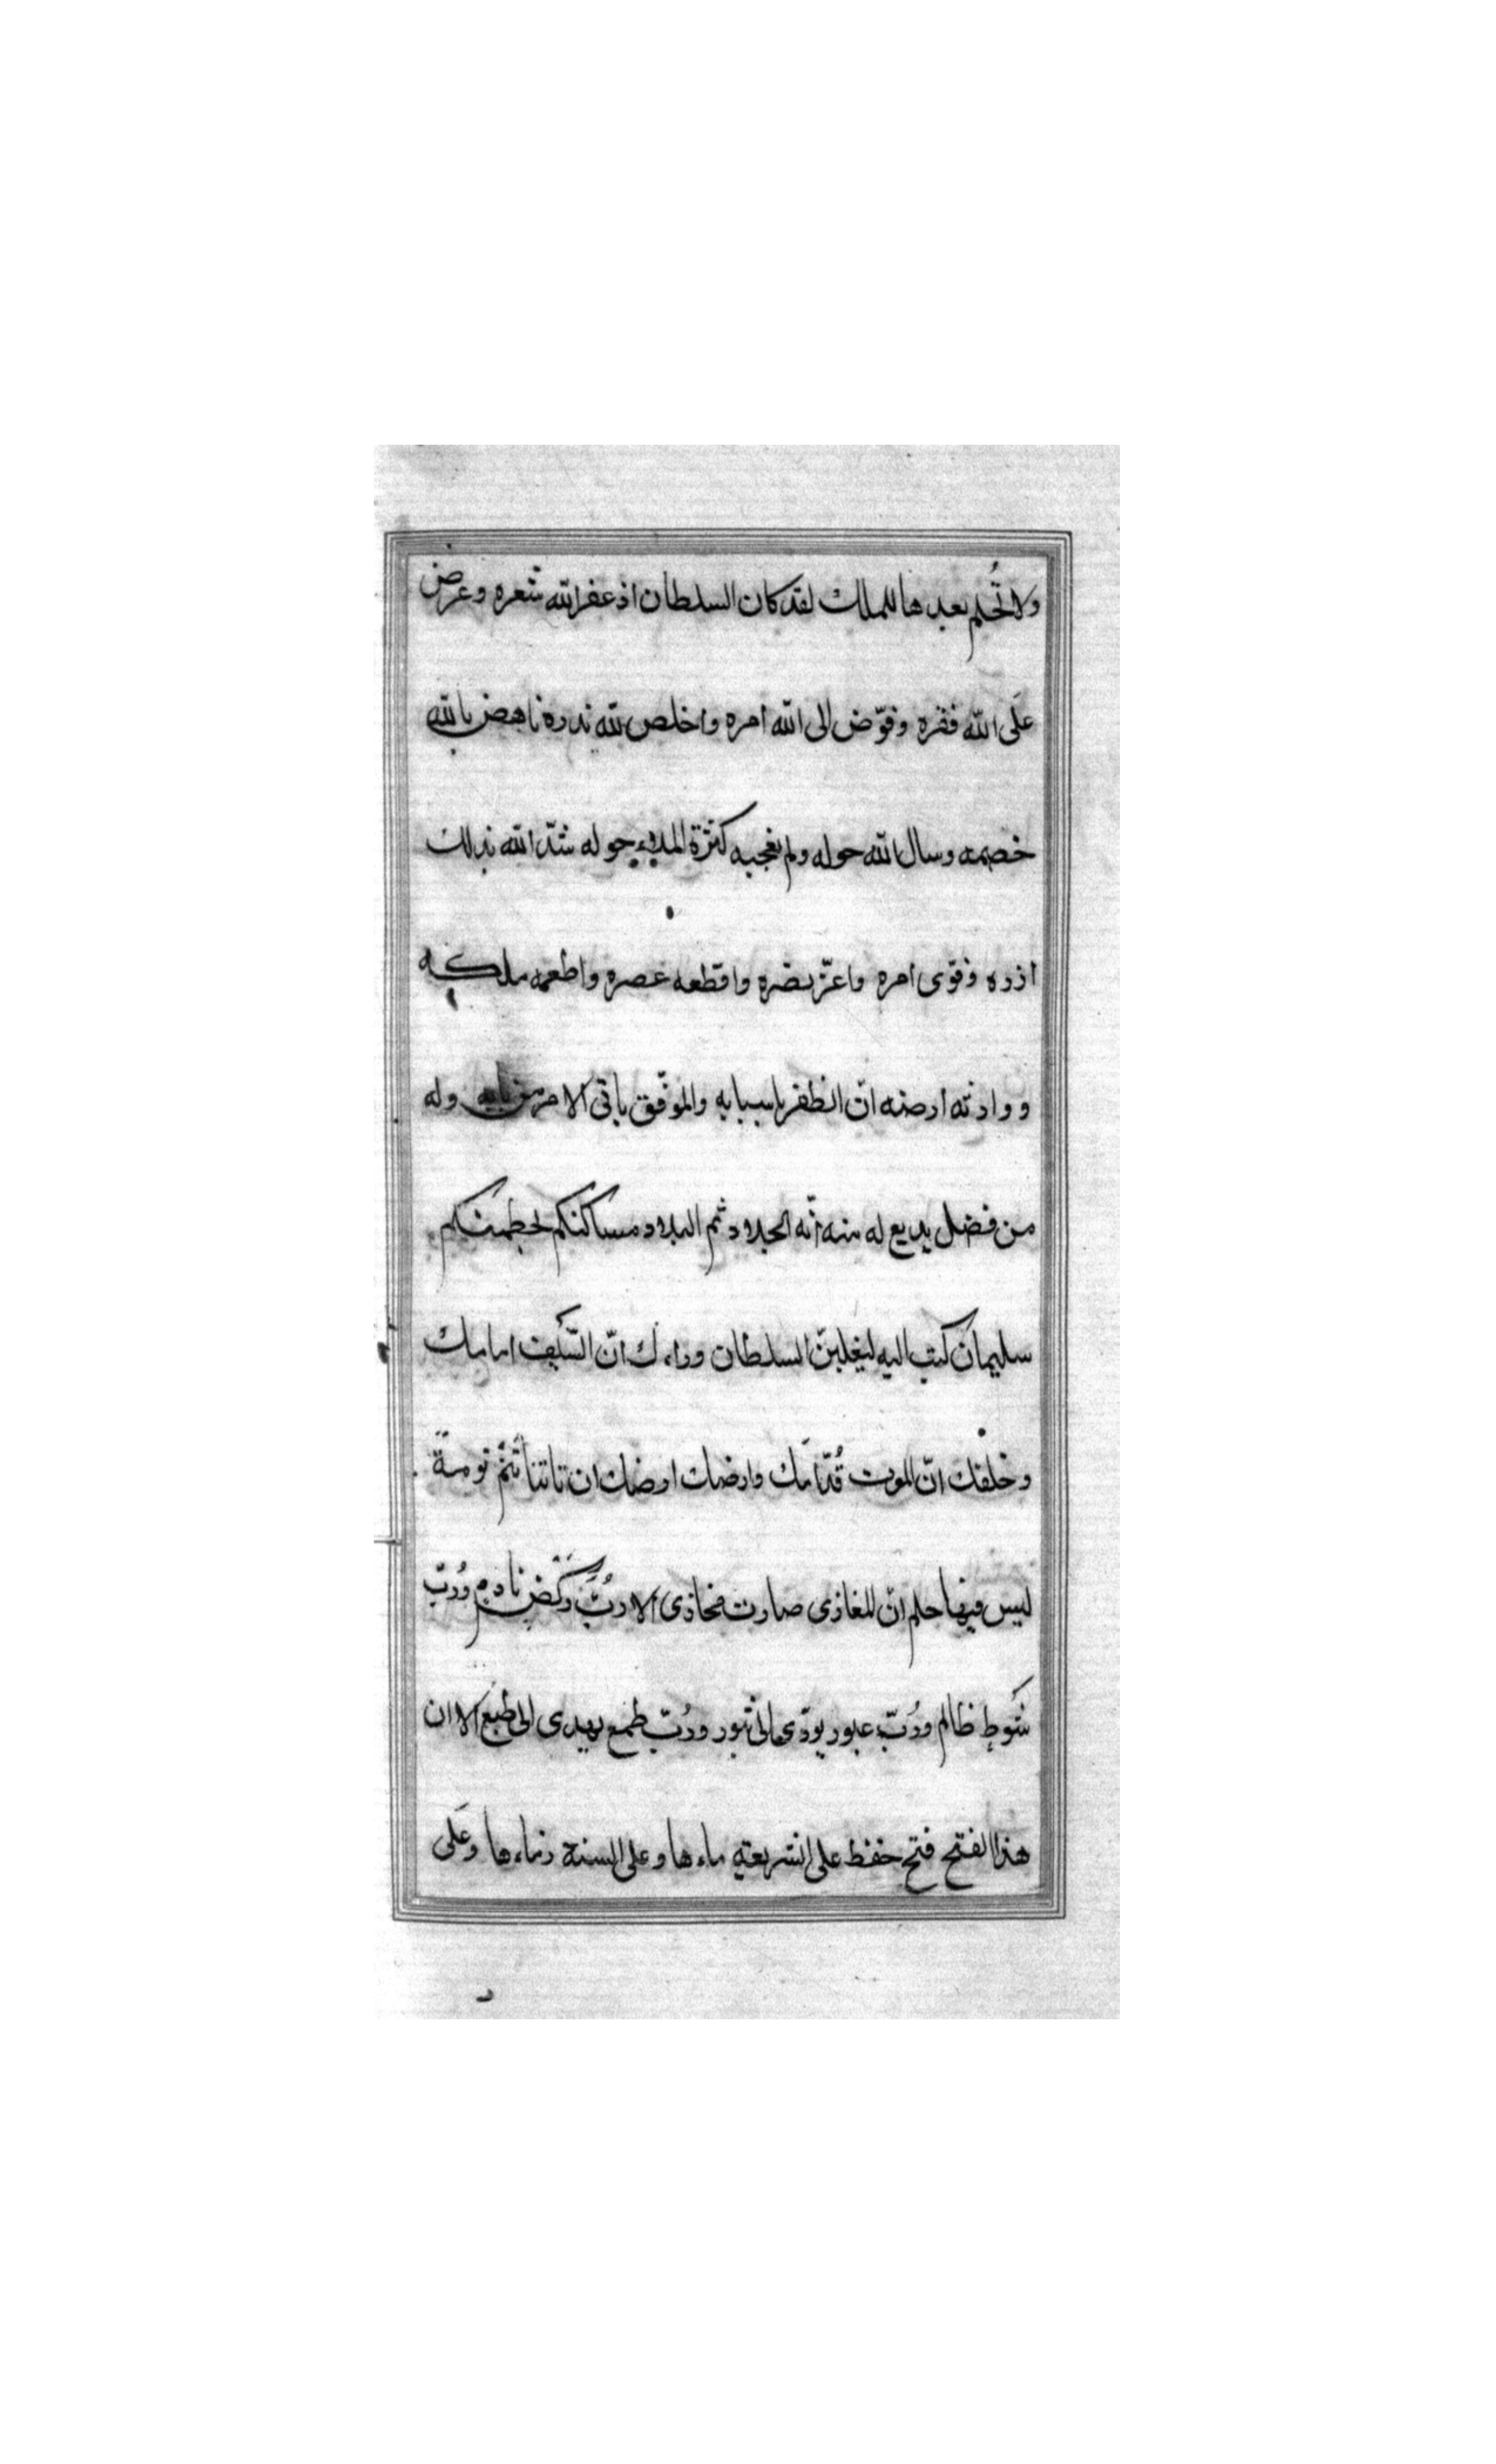 ولا تُحلم بعدها للملك لقد كان السلطان اذ عفر الله شعره وعرض
علَى الله فقره وفوّض الى الله امره واخلص لله نذره ناهض بالله
خصمه وسال الله حوله ولم يعجبه كثرة الملاء حوله شدّ الله بذلك
ازره وقوّى امره واعزّ نصره واقطعه عصره واطعمه ملكه
ووارثه ارضه انّ الظفر باسبابه والموفّق ياتى الامر من بابه وله
من فضل بديع له منه انّه الجلاد ثم البلاد مساكنكم لحطمنكم
سليمان كتب اليه ليغلبنّ السلطان وراءك انّ السّيف امامك
وخلفك انّ الموت قُدّامَك وارضك ارضك ان تاتنا تَنَمْ نومةً
ليس فيها حلم انّ للغازى صارت مخازى الا ورُبَّ ركض نادم ورُبّ
شَوطِ ظالم ورُبّ عبور يودّى الى ثبور ورُبّ طمع يهدى الى طبع الا ان
هذا الفتح فتح حفظ على الشريعة ماءها وعلى السنة ذماءها وعلَى